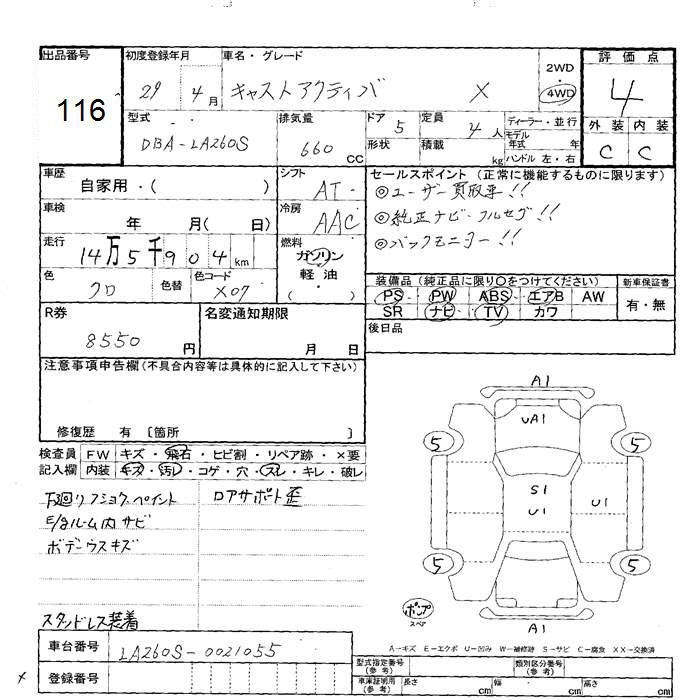 出品番号
116
初度登録年月
29年 4月
車名・グレード
キャストアクティバ X
2WD
・
4WD
評価点
4
外装 内装
C C
型式
DBA-LA260S
排気量
660 CC
ドア 5
形状
定員 4人
積載 kg
ディーラー・並行
モデル年式 年
ハンドル 左・右
車歴
自家用・( )
シフト
AT・
車検
年 月( 日)
冷房
AAC
走行
14万5千904km
燃料
ガソリン
・
軽油
( ・ )
色
クロ
色替
色コード
X07
セールスポイント (正常に機能するものに限ります)
◎ユーザー買取車!!
◎純正ナビ・フルセグ!!
◎バックモニター!!
装備品 (純正品に限り○をつけてください)
PS・PW・ABS・エアB AW
SR・ナビ・TV・カワ
新車保証書
有・無
後日品
R券
8550円
名変通知期限
月 日
注意事項申告欄(不具合内容等は具体的に記入して下さい)
修復歴 有 〔箇所 〕
検査員記入欄
FW キズ・飛石・ヒビ割・リペア跡・×要
内装 キズ・汚レ・コゲ・穴・スレ・キレ・破レ
下廻リフショク ペイント
ロアサポート歪
E/gルーム内サビ
ボデーウスキズ
スタッドレス装着
A1
UA1
5 5
S1
U1 U1
5 5
ポンプ
スペア
A1
A-キズ E-エクボ U-凹み W-補修跡 S-サビ C-腐食 XX-交換済
車台番号
LA260S-0021055
登録番号
型式指定番号(参考)
類別区分番号(参考)
車庫証明用(参考)
長さ cm 幅 cm 高さ cm